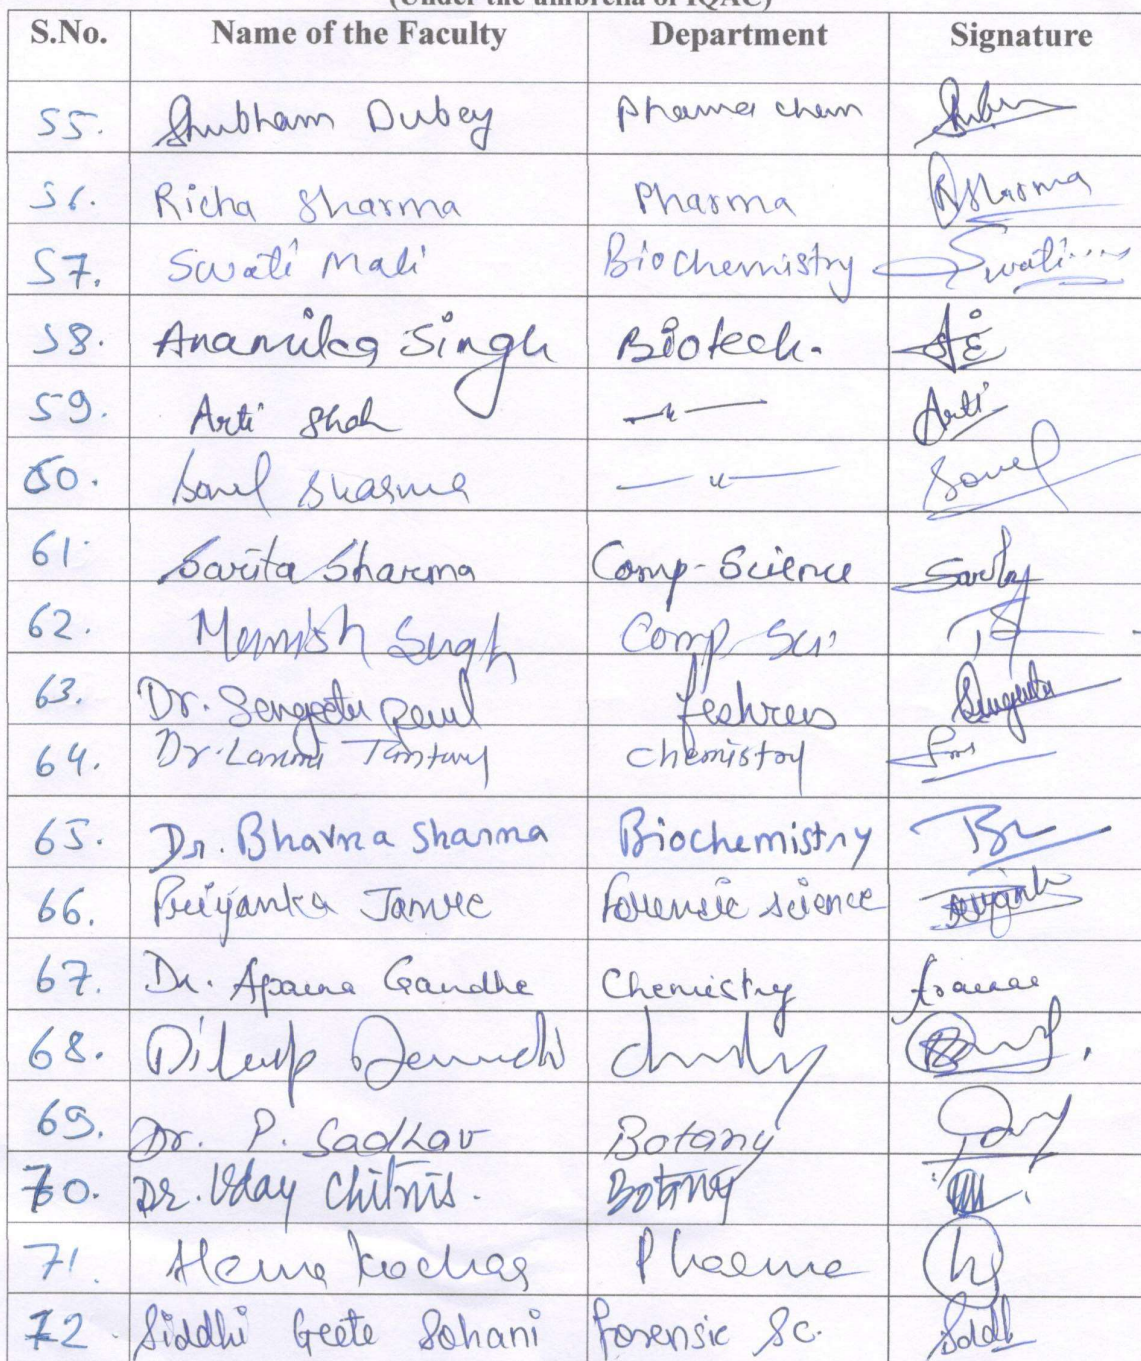 (Under the umbrella of IQAC)
S.No. Name of the Faculty Department Signature
55. Shubham Dubey Pharma chem
56. Richa Sharma Pharma RSharma
57. Swati Mali Biochemistry Swati
58. Anamika Singh Biotech.
59. Arti Shah —"— Arti
60. Sonel Sharma —"— Sonel
61. Sarita Sharma Comp-Science
62. Manish Singh Comp Sci
63. Dr. Sangeeta Paul Sangeeta
64. Dr. Laxmi Chemistry
65. Dr. Bhavna Sharma Biochemistry
66. Priyanka Janwe Forensic science
67. Dr. Aparna Gandhe Chemistry
68. Dilip
69. Dr. P. Sadhav Botany
70. Dr. Uday Chitnis. Botany
71. Hema Kochar Pharma
72. Siddhi Geete Sohani Forensic Sc. Siddhi